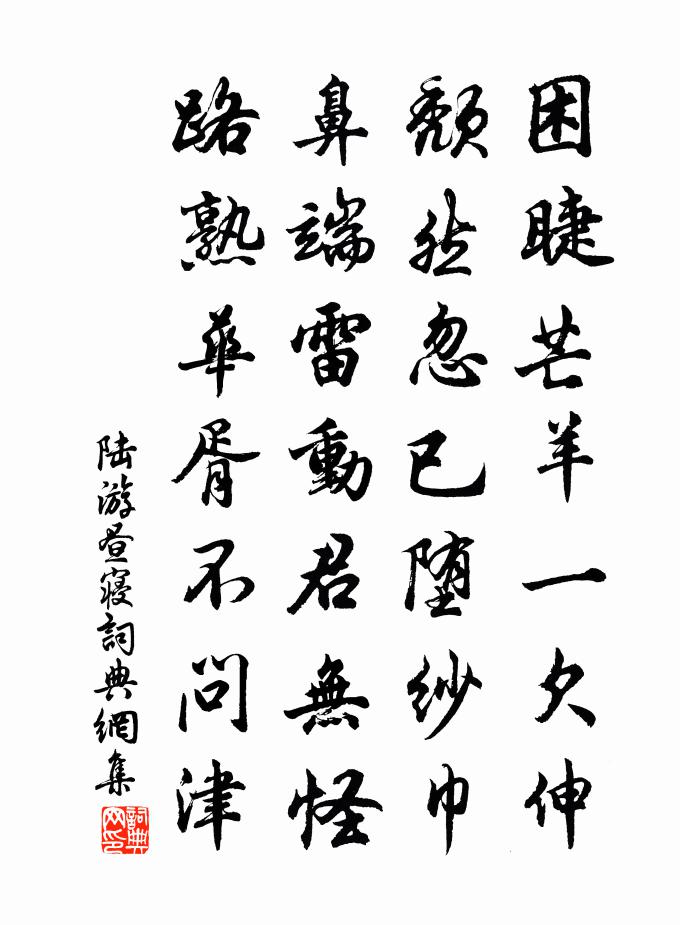 困睫芒羊一欠伸
頹然忽已墮紗巾
鼻端雷動君無怪
路熟華胥不問津
陸游晝寢詞典網集
詞典网印